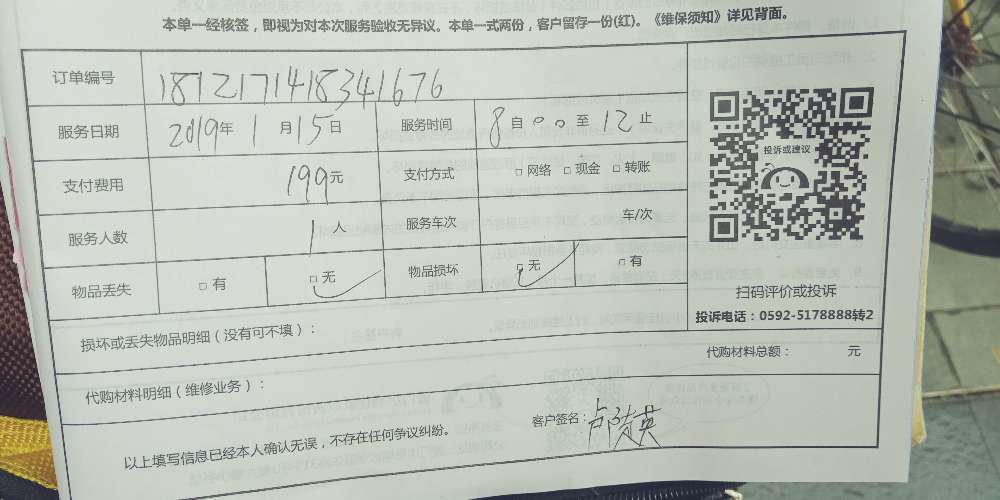 本单一经核签，即视为对本次服务验收无异议。本单一式两份，客户留存一份(红)。《维保须知》详见背面。
订单编号 1812171418341676
服务日期 2019年 1月15日 服务时间 8自00至12止
支付费用 199元 支付方式 □网络 □现金 □转账
服务人数 1人 服务车次 车/次
物品丢失 □有 □无 物品损坏 □无 □有
投诉或建议
扫码评价或投诉
投诉电话：0592-5178888转2
损坏或丢失物品明细（没有可不填）：
代购材料明细（维修业务）： 代购材料总额： 元
以上填写信息已经本人确认无误，不存在任何争议纠纷。 客户签名：卢 英